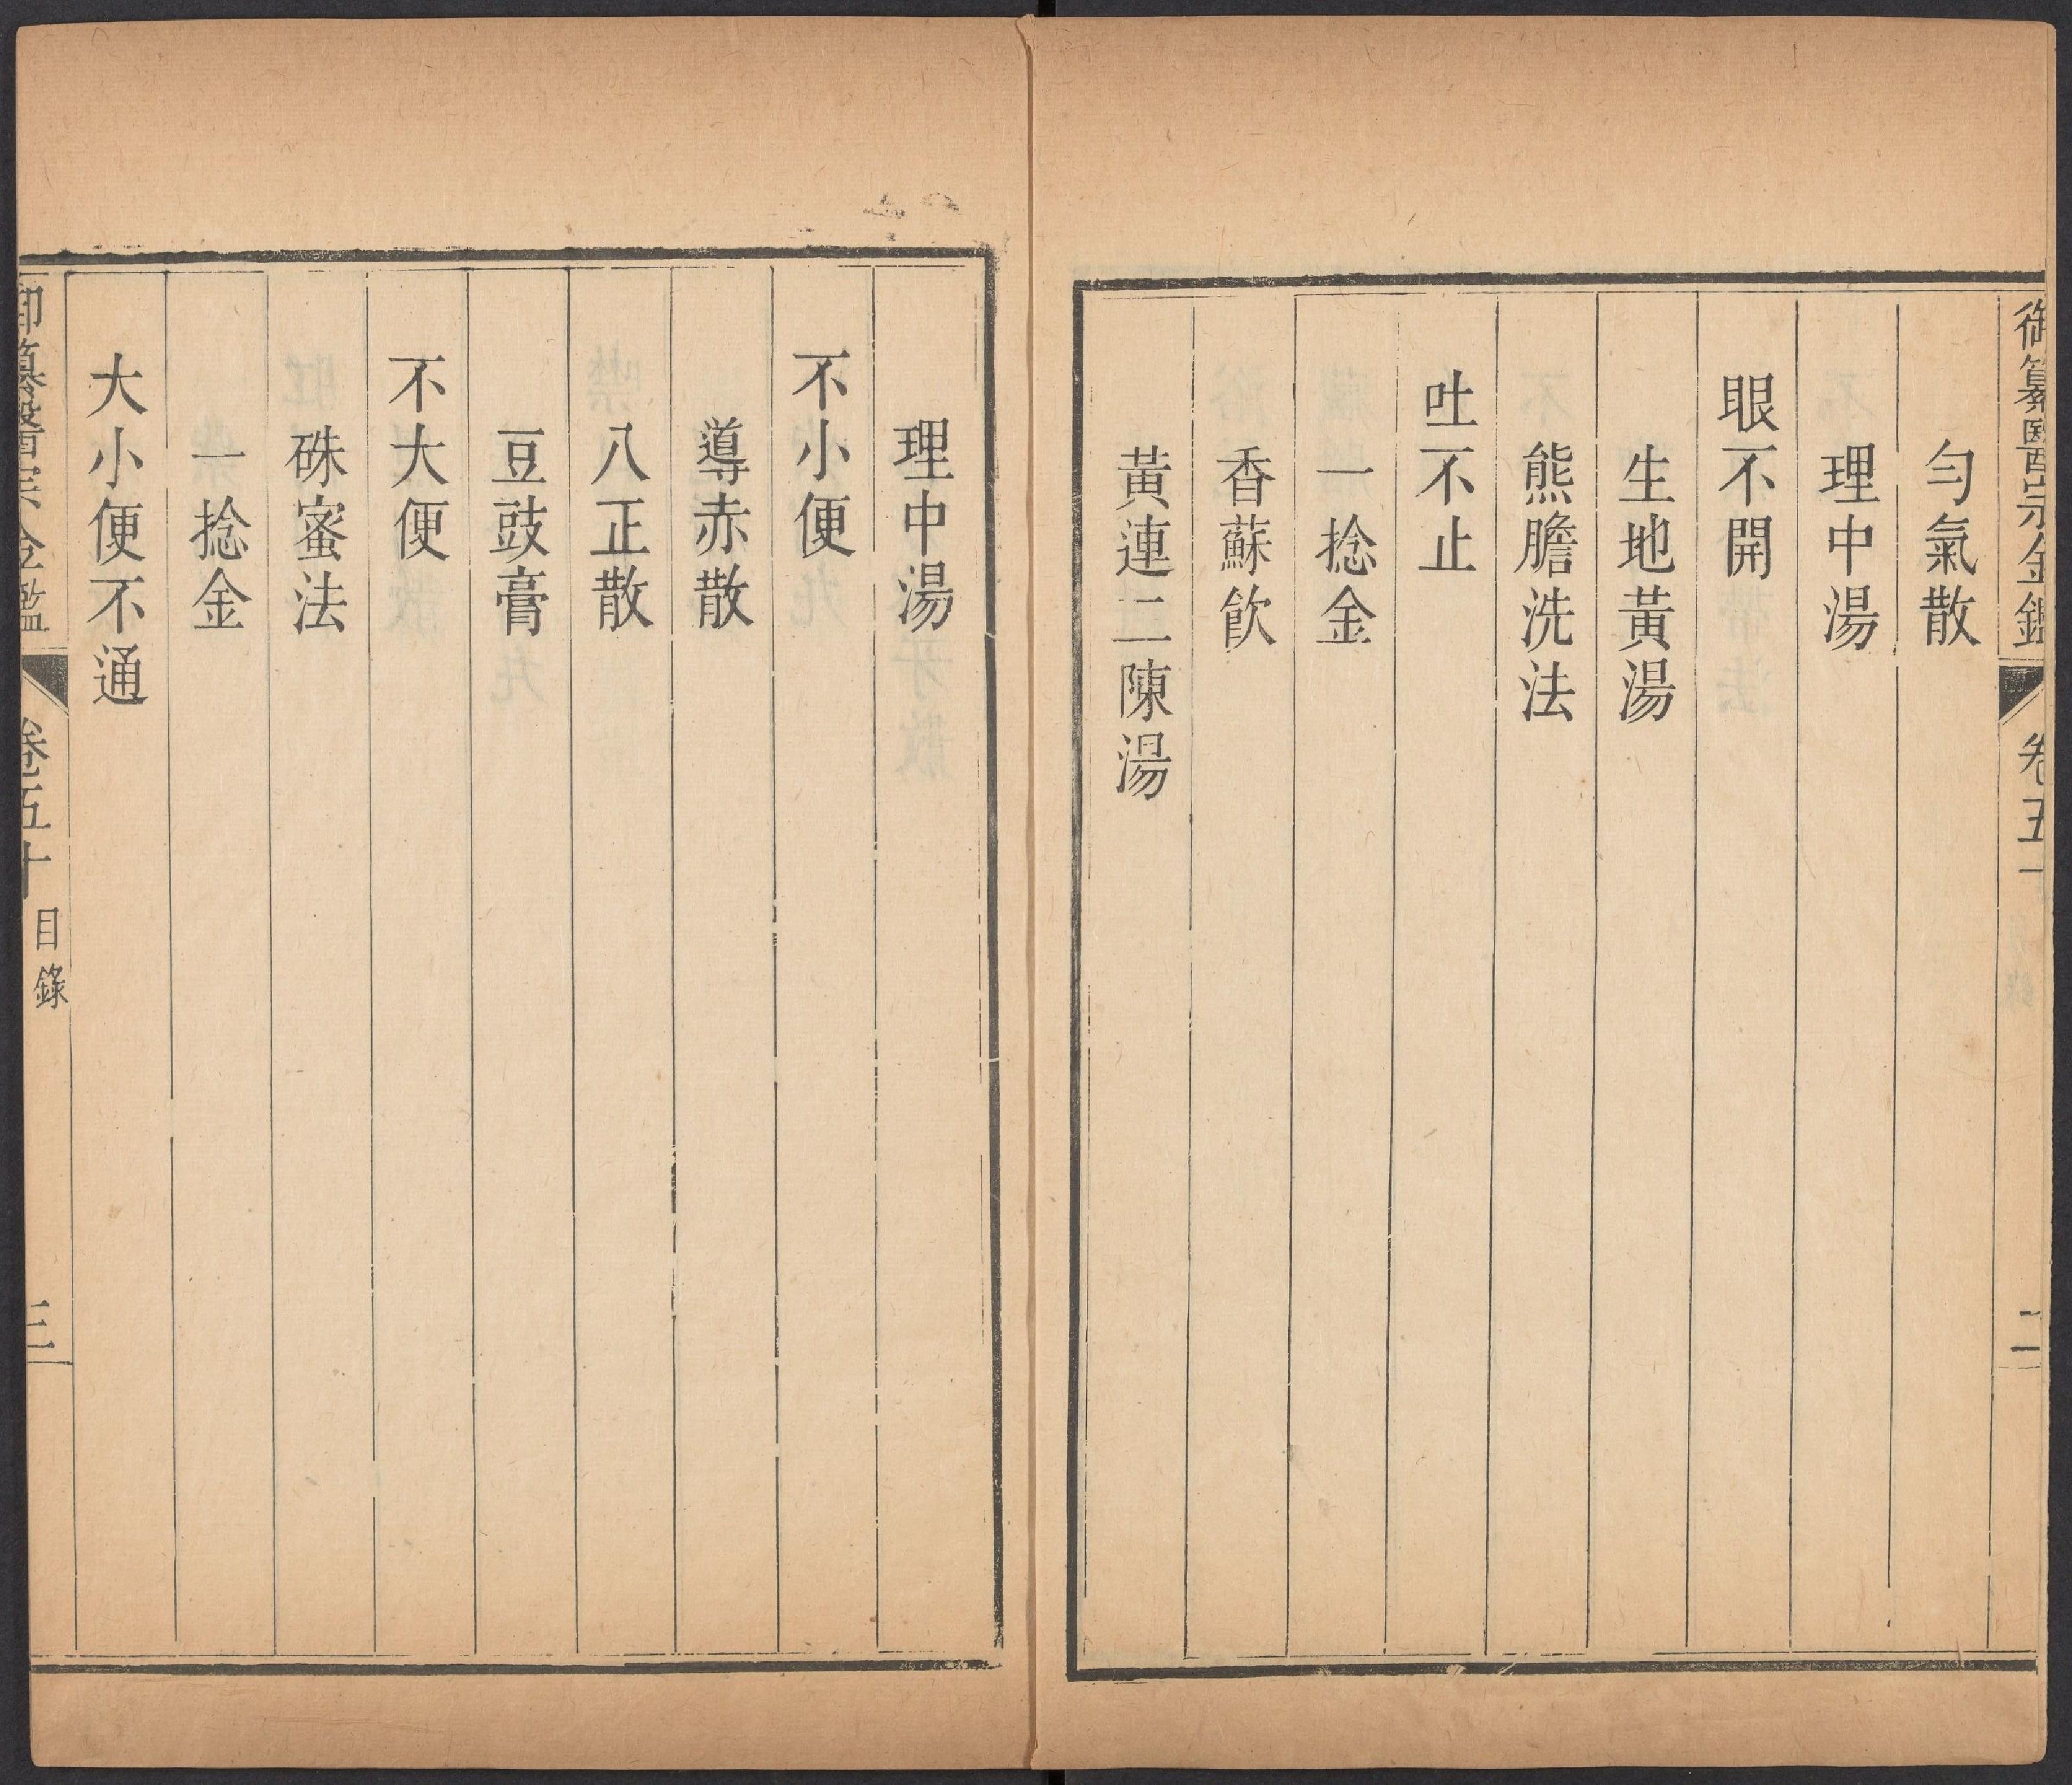 御纂醫宗金鑑 卷五十 二
勻氣散
理中湯
眼不開
生地黃湯
熊膽洗法
吐不止
一捻金
香蘇飲
黃連二陳湯
理中湯
不小便
導赤散
八正散
豆豉膏
不大便
硃蜜法
一捻金
大小便不通
御纂醫宗金鑑 卷五十 目錄 三